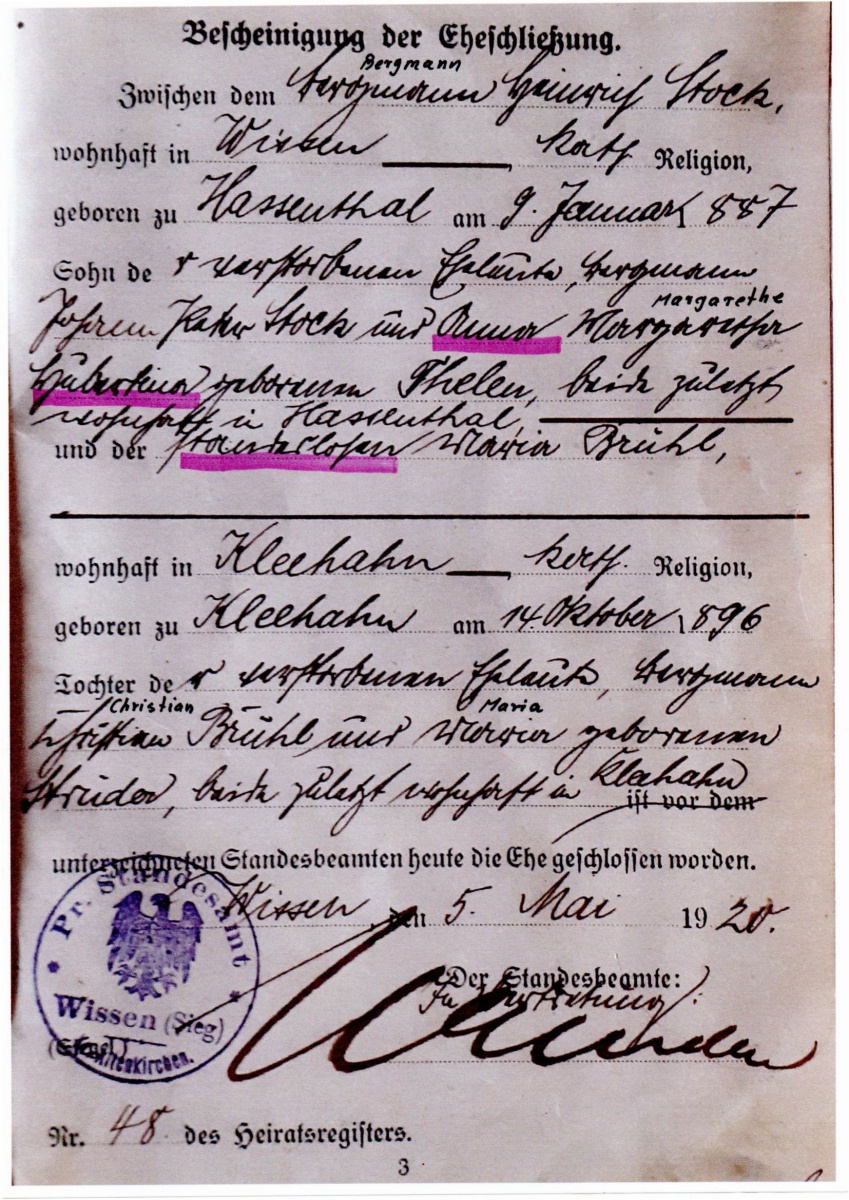 Bescheinigung der Eheschließung.
Bergmann
Zwischen dem Bergmann Heinrich Stock,
wohnhaft in Wissen, kath. Religion,
geboren zu Hassenthal am 9. Januar 1887
Sohn der verstorbenen Eheleute, Bergmann
Margarethe
Johann Peter Stock und Anna Margaretha
Hubertina geborenen Thelen, beide zuletzt
wohnhaft in Hassenthal,
und der standeslosen Maria Brühl,
wohnhaft in Kleehahn, kath. Religion,
geboren zu Kleehahn am 14 Oktober 1896
Tochter der verstorbenen Eheleute, Bergmann
Christian Maria
Christian Brühl und Maria geborenen
Struder, beide zuletzt wohnhaft in Kleehahn
ist vor dem
unterzeichneten Standesbeamten heute die Ehe geschlossen worden.
Wissen, den 5. Mai 1920.
Pr. Standesamt
Wissen (Sieg)
Altenkirchen.
Der Standesbeamte:
In Vertretung:
Nr. 48 des Heiratsregisters.
3